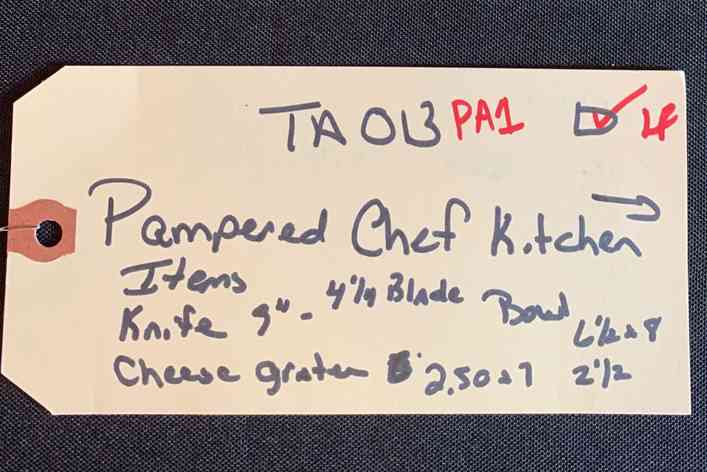 TA013 PA1 LF
Pampered Chef Kitchen
Items
Knife 9" - 4 1/4 Blade Bowl
6 1/2 x 8
Cheese grater 2.50 x 7 2 1/2